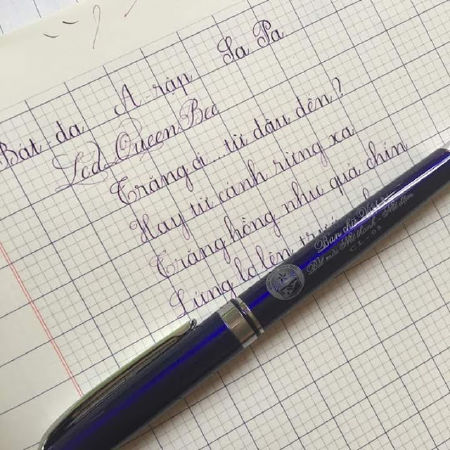 Bát-đa A-rập Sa Pa
Led_Queen Bee
Trăng ơi...từ đâu đến?
Hay từ cánh rừng xa
Trăng hồng như quả chín
Lửng lơ lên trước